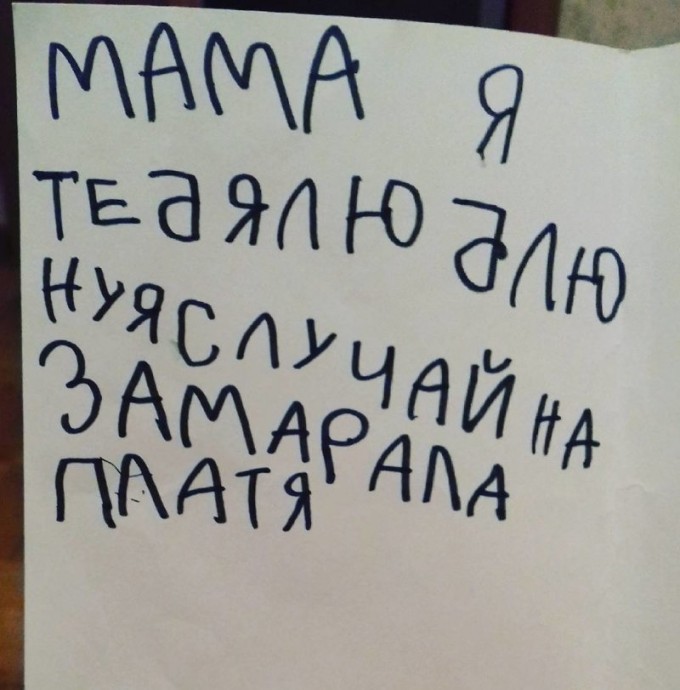 МАМА Я
ТЕБЯЛЮ БЛЮ
НУЯСЛУЧАЙ НА
ЗАМАРАЛА
ПЛАТЯ